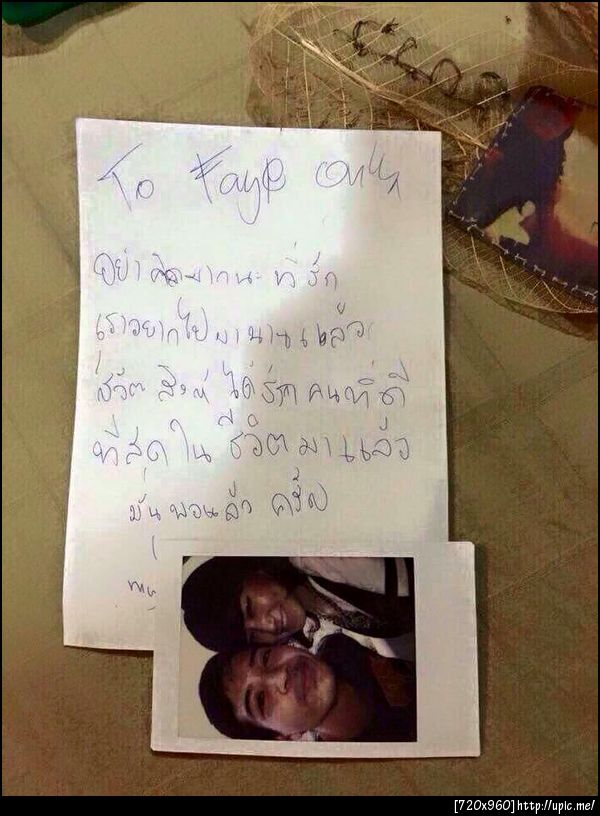 To Faye only
อย่าคิดมากนะที่รัก
เราอยากไปมานานแล้ว
ชีวิต สิงห์ ได้รักคนที่ดี
ที่สุดในชีวิตมาแล้ว
มันพอแล้ว ครับ
[720x960]http://upic.me/